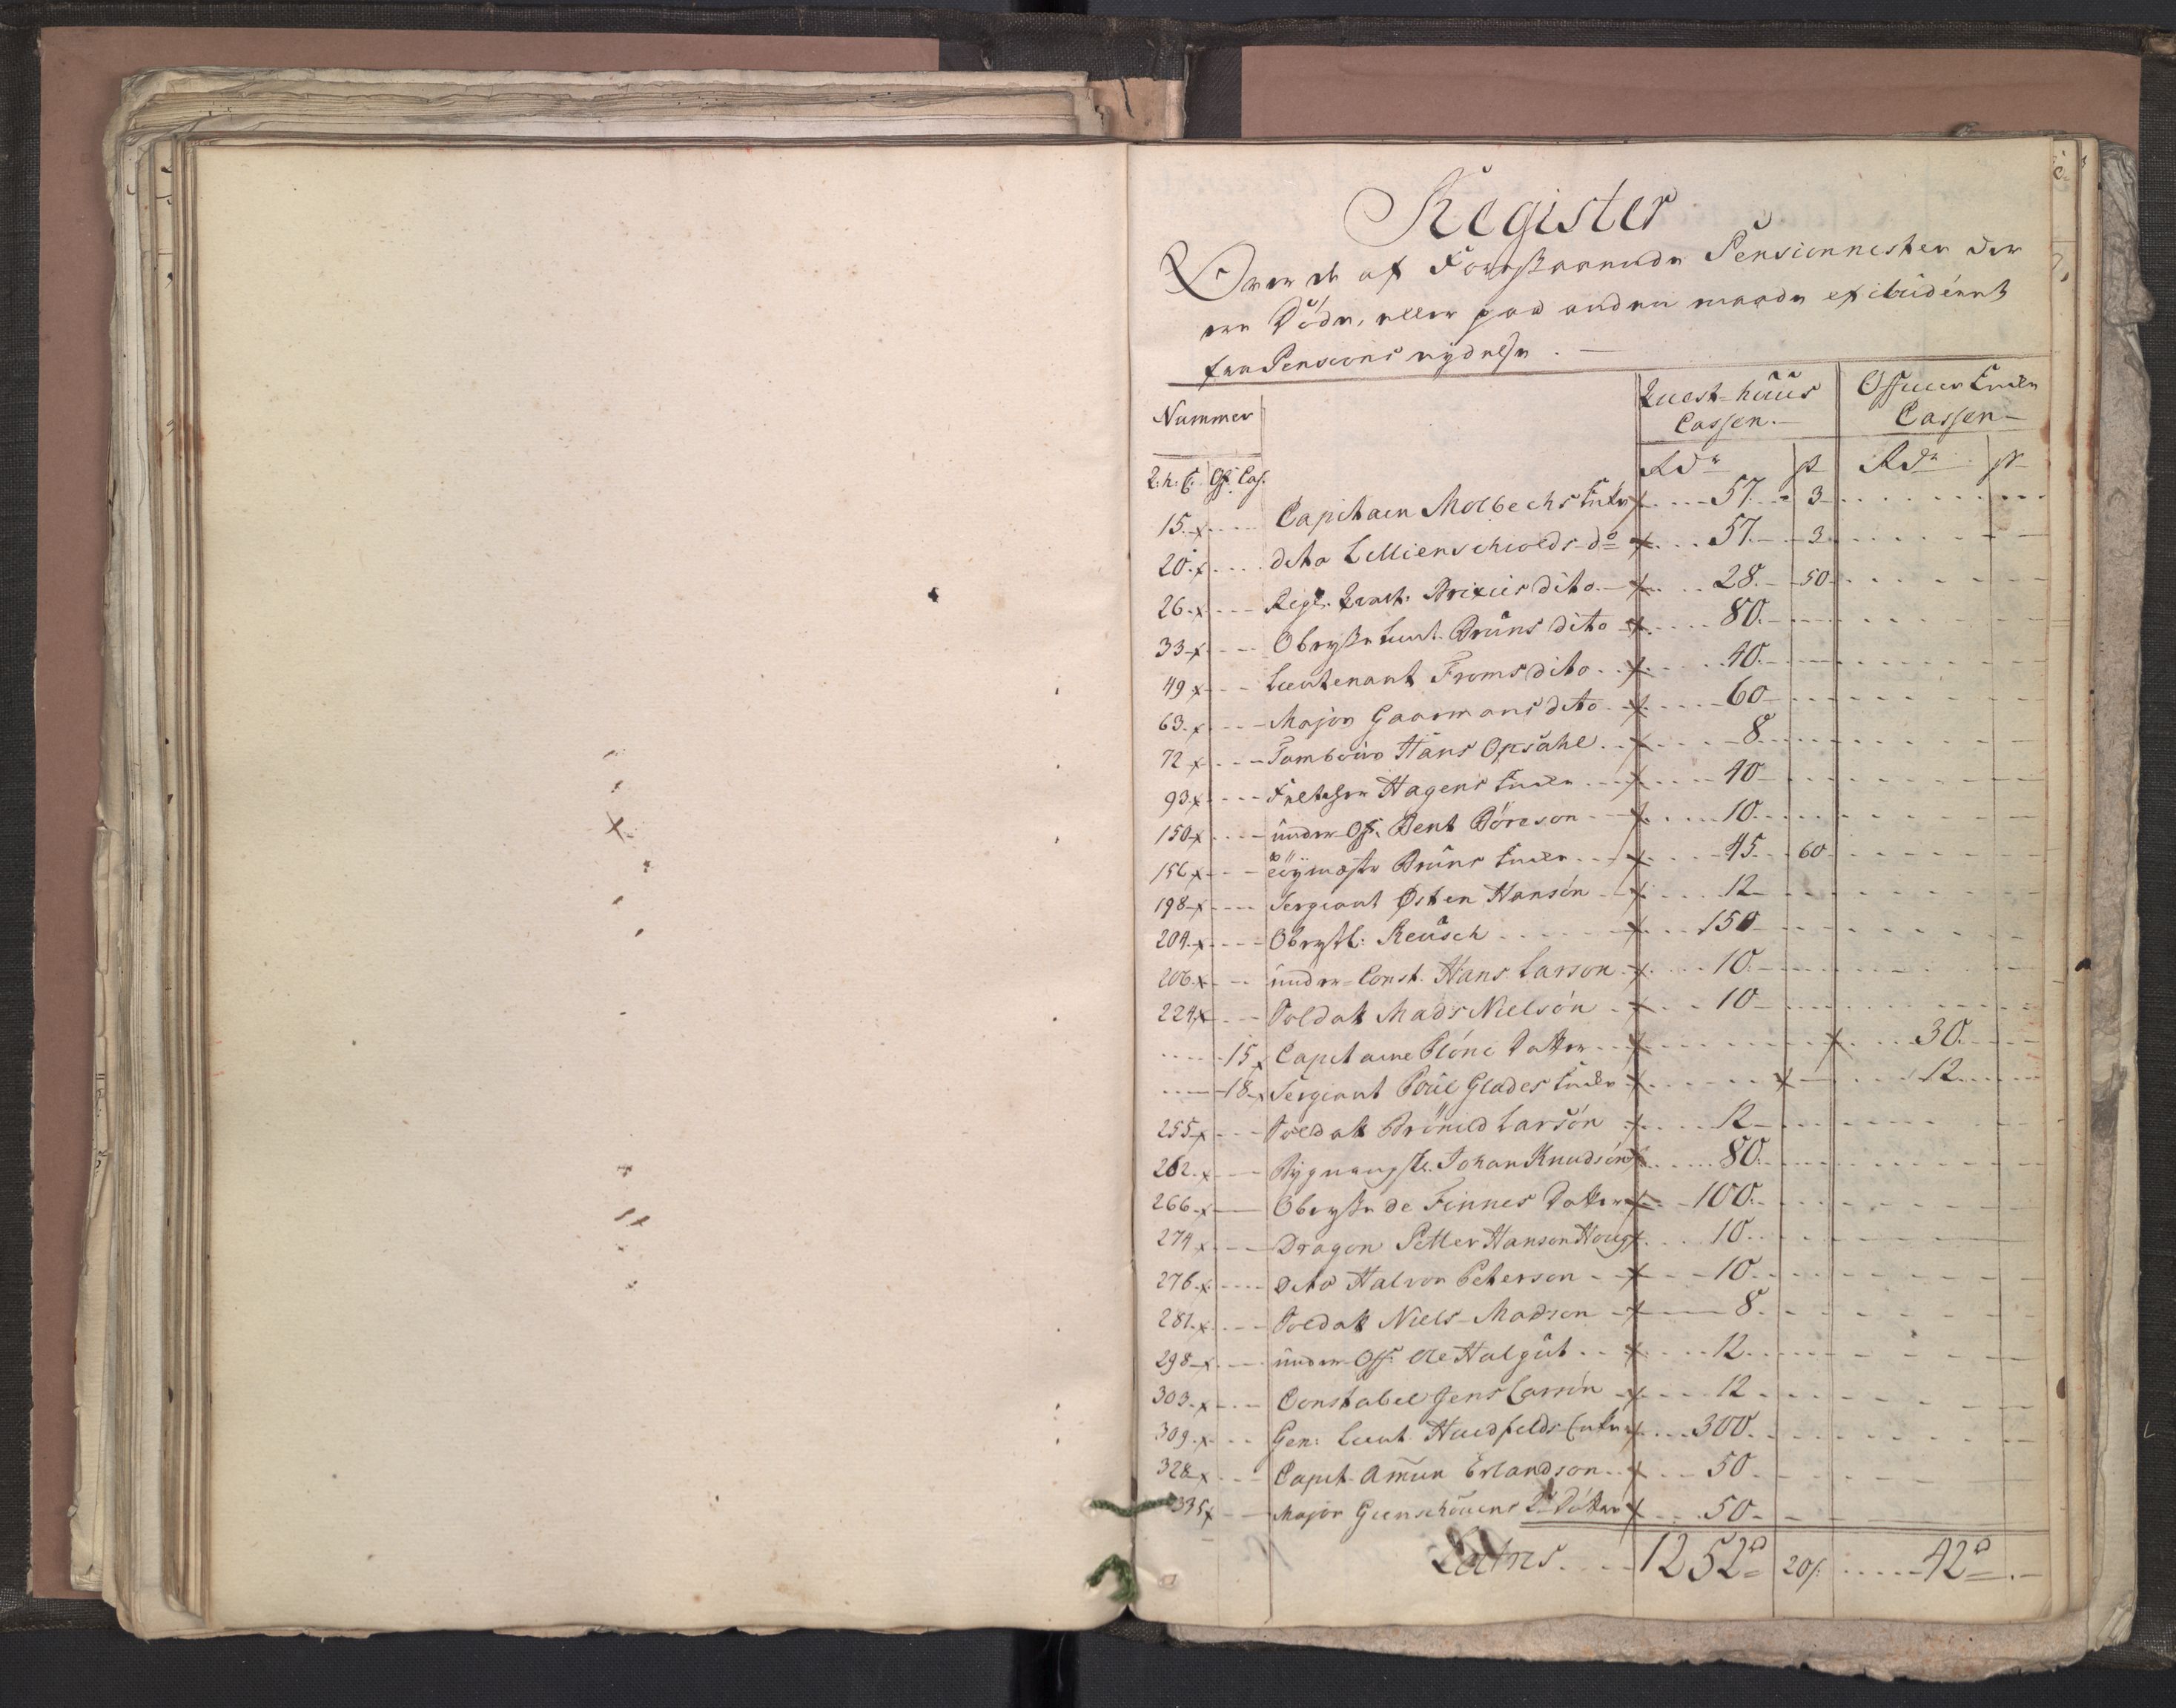 Register
Over de af Forestaaende Pensionnister der
ere Döde, eller paa anden maade exibideret
fra Pensions nydelse. —
Nummer
Quest-huus Cassen.— Officeer Enke Cassen—
Q:h:C: Off: Cas: Rdr ß Rdr ß
15.x Capitaen Molbechs Enke x 57. 3
20.x dito Lillienschiolds do x 57. 3
26.x Regt: Qvart: Brixeis dito x 28. 50
33.x Obryste Lieut. Bruns dito x 80.
49 x Lieutenant Froms dito x 40.
63.x Major Gaarmans dito x 60
72 x Tambour Hans Opsahl x 8
93 x Feltskier Hagens Enke x 40
150 x under Off. Bent Böreson x 10.
156 x Bruns Enke x 45. 60
198 x Sergiant Østen Hansön x 12
204.x Obrystl: Reusch x 150
206.x under-Const. Hans Larson x 10.
224.x Soldat Mads Nielsön x 10
15 x Capitaine Döttre x x 30.
18 x Sergiant Poul Glades Enke x x 12
255 x Soldat Brönild Larsön x 12
262.x Johan Knudsön x 80.
266.x Obryste de Finnes Dotter x 100.
274 x Dragon Petter Hanson Houg x 10.
276.x Dito Halvor Peterson x 10.
281.x Soldat Niels Madson x 8.
298 x under Off: Ole Halgut x 12.
303.x Constabel Jens Larsön x 12
309.x Gen: Lieut. Huidfelds Enke x 300.
328 x Capit. Amun Erlandson x 50
335 x Major Geenschöuens 2de Döttre x 50
Latres 1252rd 20ß 42rd